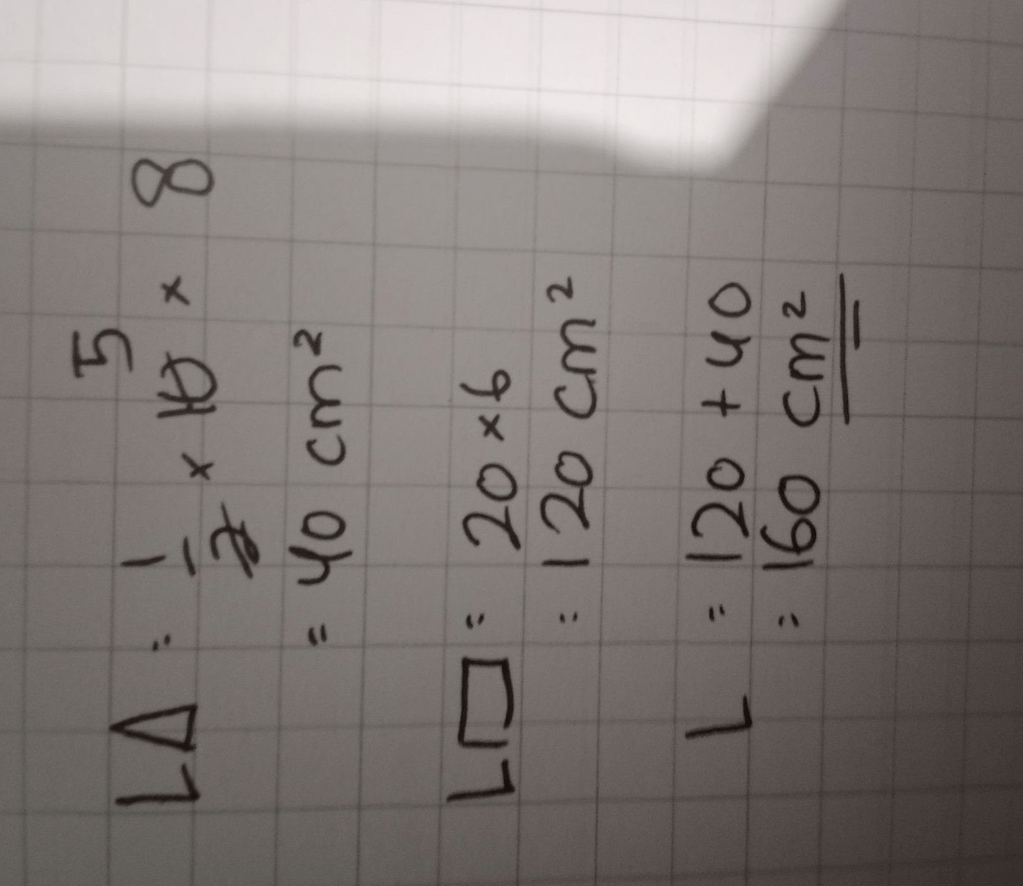 L△ = 1/2 × 10 × 8
5
= 40 cm²
L▭ = 20 × 6
= 120 cm²
L = 120 + 40
= 160 cm²